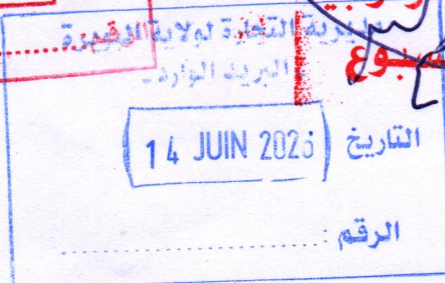 مديرية التجارة لولاية البويرة
البريد الوارد
التاريخ 14 JUIN 2026
الرقم :